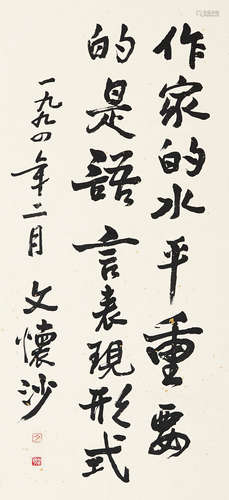 作家的水平重要
的是語言表現形式
一九九四年二月
文懷沙